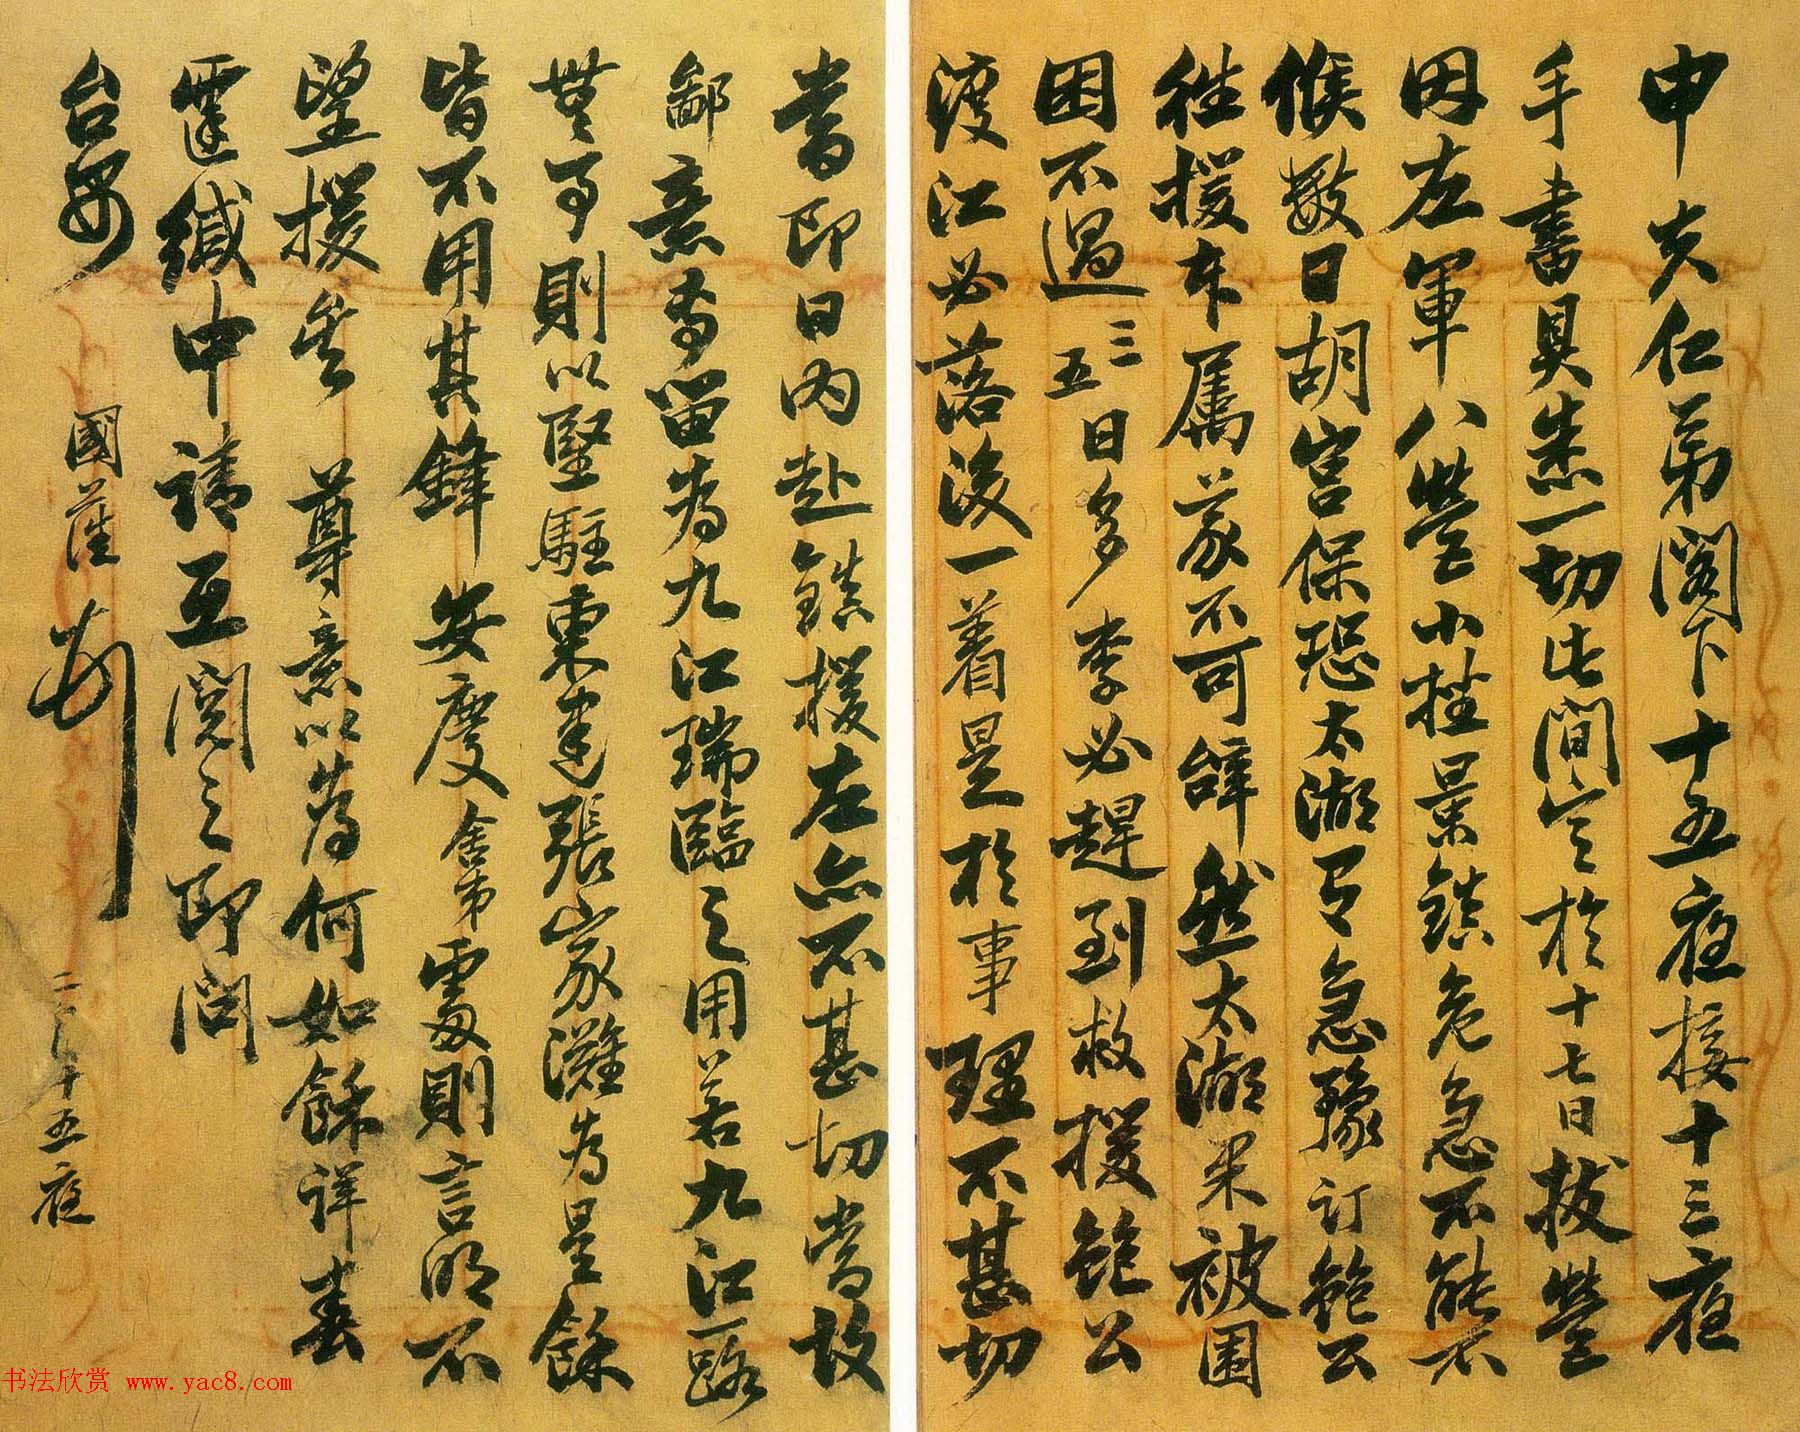 申夫仁弟閣下十五夜接十三夜
手書具悉一切此間定於十七日拔營
因左軍八營小挫景鎮危急不能不
候數日胡宮保恐太湖有急豫訂鮑公
往援本屬義不可辭然太湖果被圍
困不過三五日多李必趕到救援鮑公
渡江必落後一着是於事理不甚切
當即日內赴鎮援左亦不甚切當故
鄙意專留為九江瑞臨之用若九江一路
無事則以堅駐東建張家灘為是餘
皆不用其鋒安慶舍弟處則言明不
望援矣 尊意以為何如餘詳春
霆緘中請互閱之即問
台安
國藩 頓
二月十五夜
书法欣赏 www.yac8.com